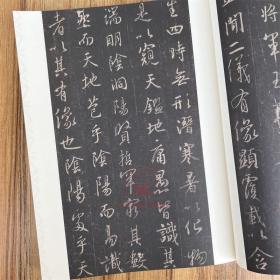 將軍王
聞二儀有像顯覆載以含
生四時無形潛寒暑以化物
是以窺天鑑地庸愚皆識其
端明陰洞陽賢哲罕窮其數
然而天地苞乎陰陽而易識
者以其有像也陰陽處乎天